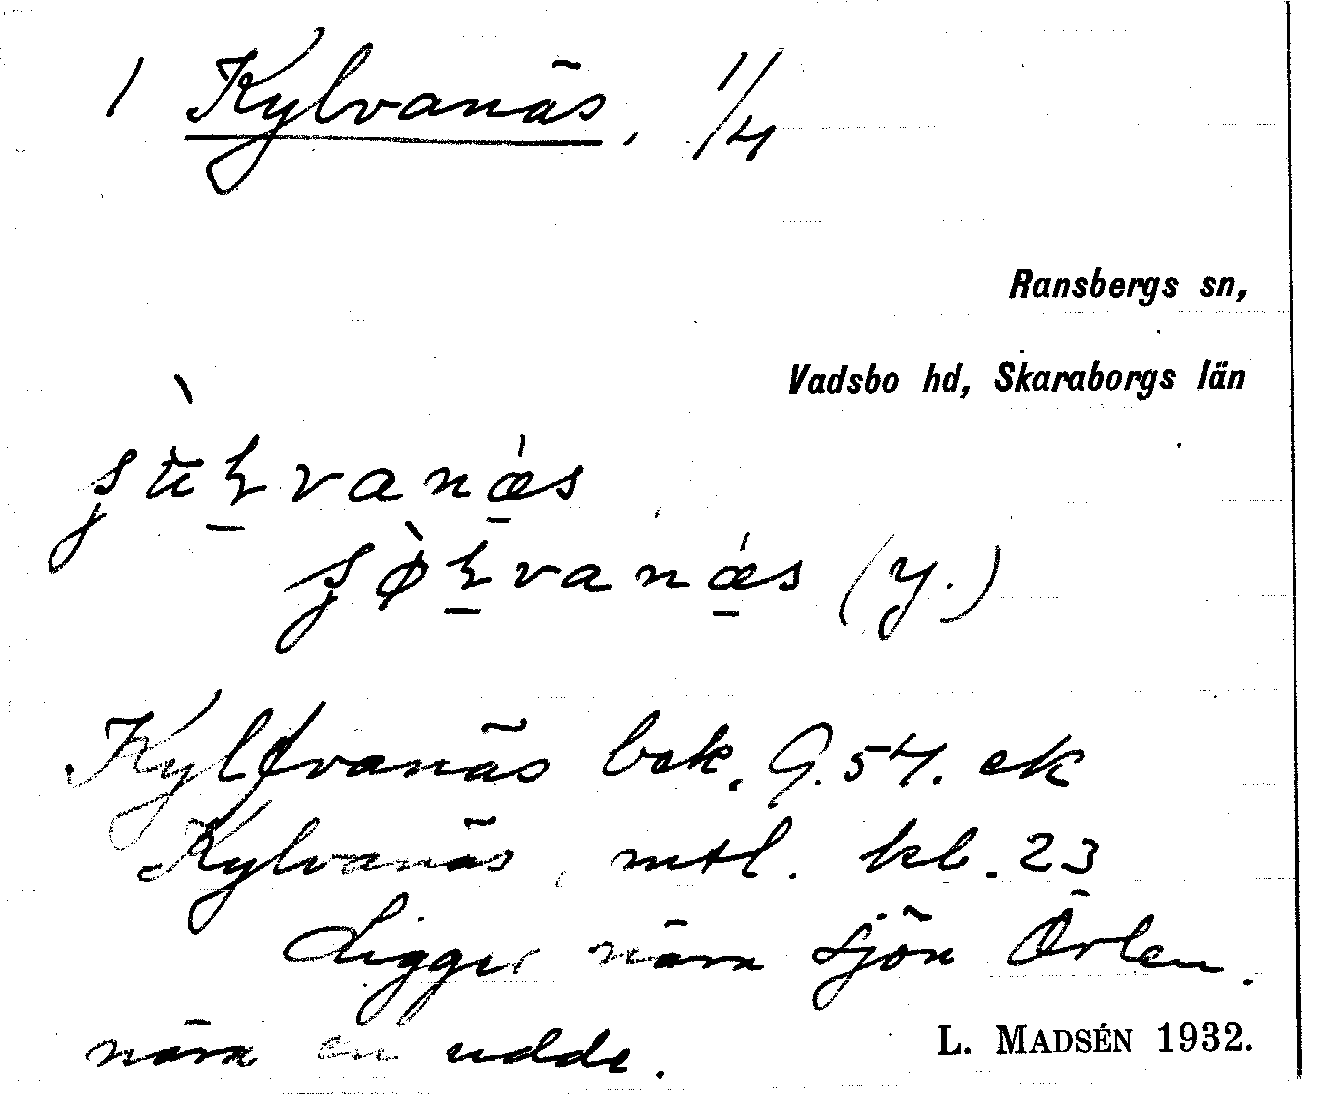 1 Kylvanäs, 1/4
Ransbergs sn,
Vadsbo hd, Skaraborgs län
(y.)
Kylfvanäs bek. G. 54. ek
Kylvanäs, mtl. kb. 23
Ligger nära sjön Örlen.
nära en udde.
L. MADSÉN 1932.